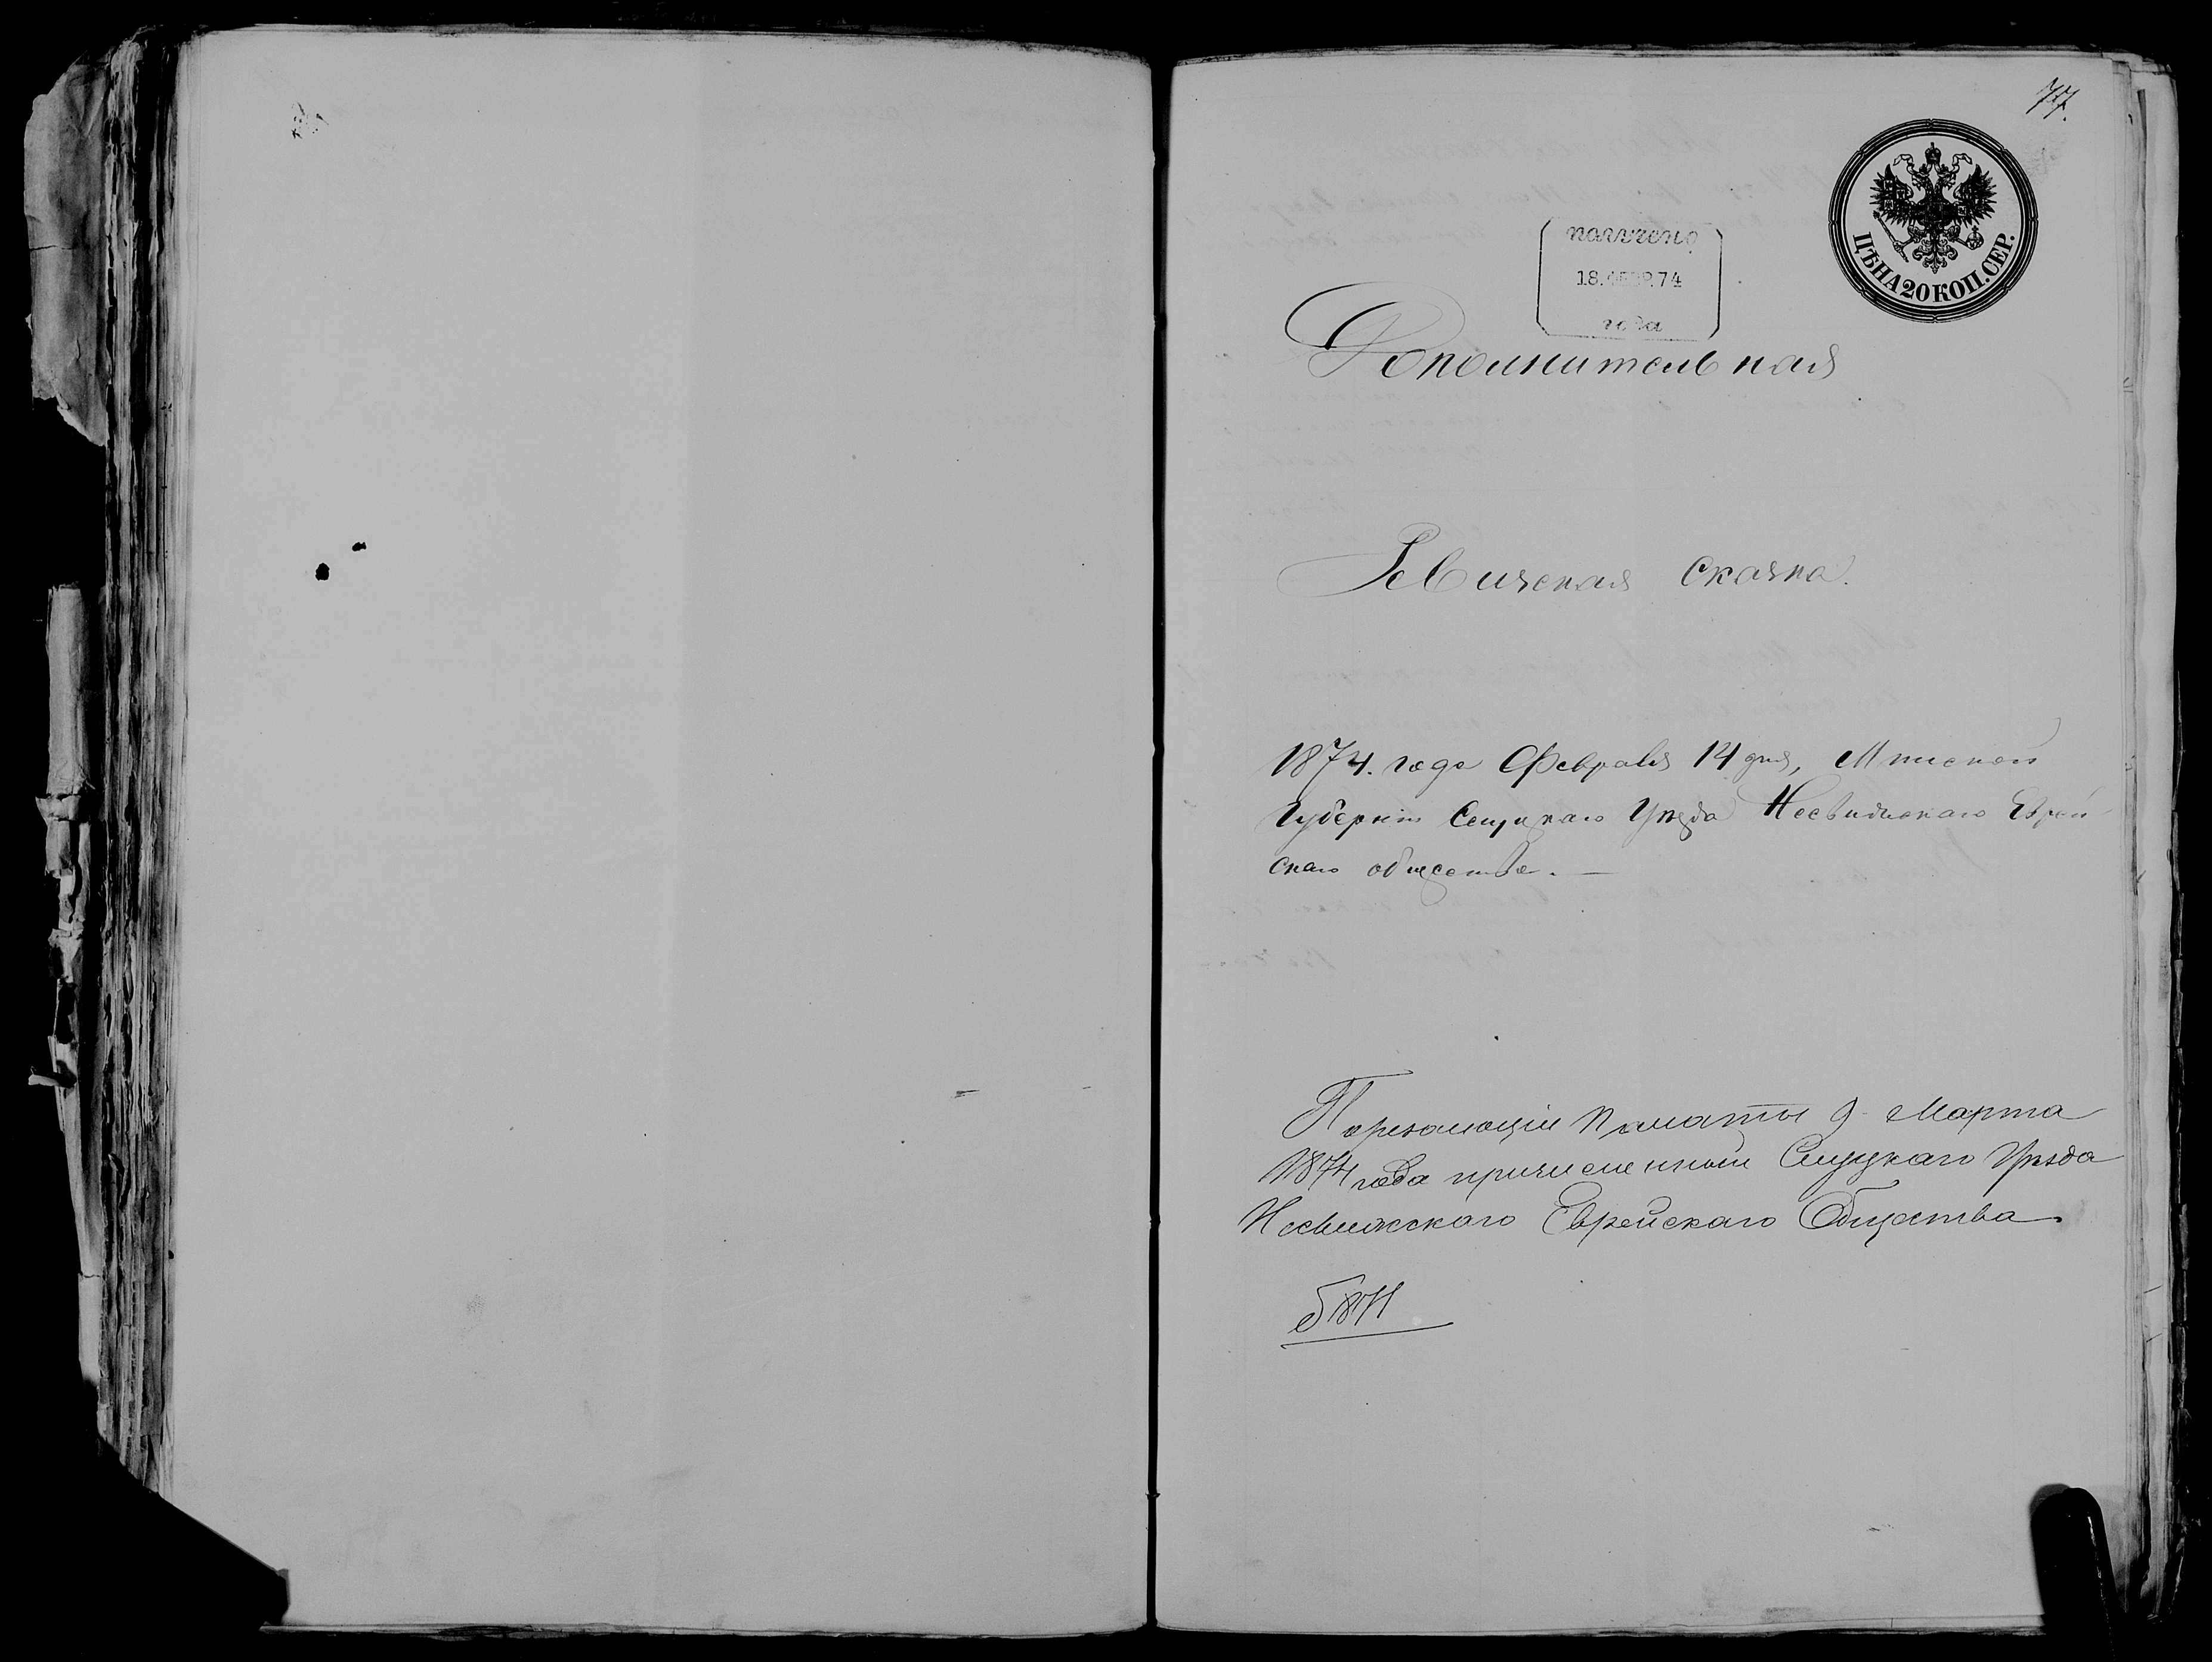 77.
ЦѢНА 20 КОП. СЕР.
получено
18.ФЕВР.74
года
Дополнительная
Ревизская сказка.
1874. года Февраля 14 дня, Минской
Губерніи Слуцкаго Уѣзда Несвижскаго Еврей
скаго общества. —
По резолюціи Палаты 9 Марта
1874 года причисленныи Слуцкаго Уѣзда
Несвижскаго Еврейскаго Общества